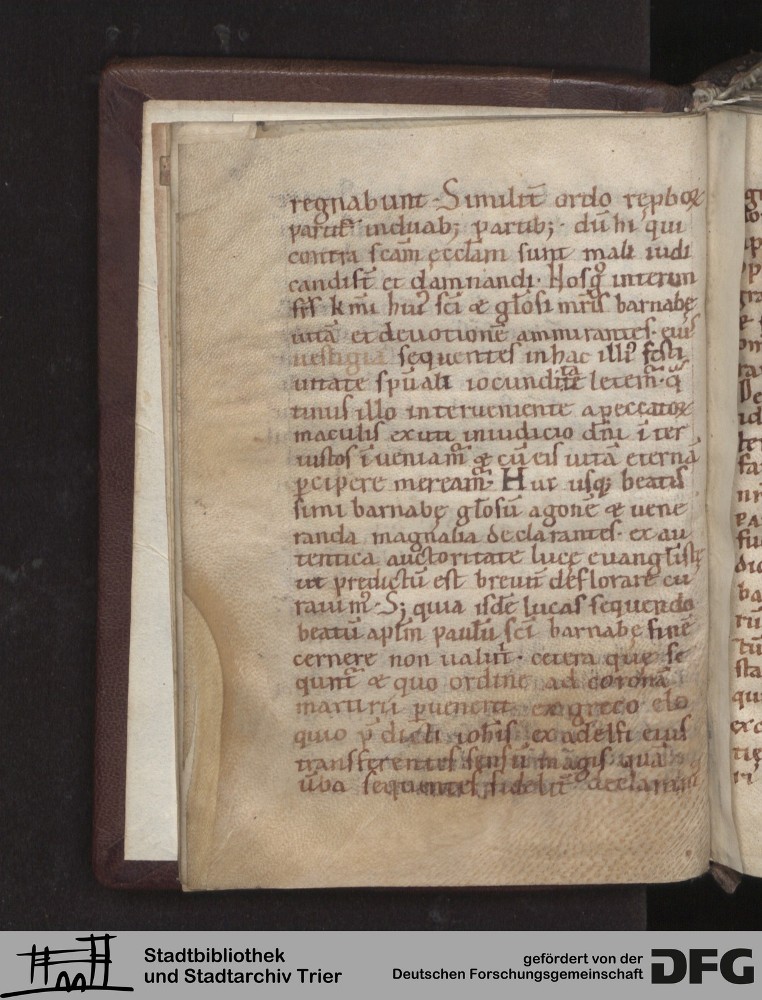 regnabunt. Similit̄ ordo rep̱boꝝ
partit᷑ in duab; partib;. dū hi qui
contra scām ęcclām sunt mali iudi
candi st̄ et damnandi. Nos gͦ interim
frs̄ km̄i huiꝰ sc̄i & glōsi mr̄is barnabę
uitā et deuotionē ammirantes. eiuſ
uestigia sequentes in hac illiꝰ festi
uitate spūali iocunditate letem̄.
tinus illo interueniente a peccatoꝝ
maculis exuti in iudicio dn̄i īter
iustos īueniam̄ & cū eis uitā eternā
ꝑcipere meream̄. Huc usq; beatis
simi barnabę glōsū agone & uene
randa magnalia declarantes. ex au
tentica auctoritate luce euangl̄istę
ut predictū est breuit̄ deflorare cu
rauimꝰ. S; quia isdē lucas sequendo
beatū aplm̄ paulū sc̄i barnabę finē
cernere non ualuit. cetera que se
qunt̄ & quo ordine ad coronā
martirii ꝑuenerit ex greco elo
quio p̄dicti iohis̄ exadelfi eius
transferentes sensū magis quā
ūba sequentes fidelit̄ declaram
Stadtbibliothek
und Stadtarchiv Trier
gefördert von der
Deutschen Forschungsgemeinschaft
DFG